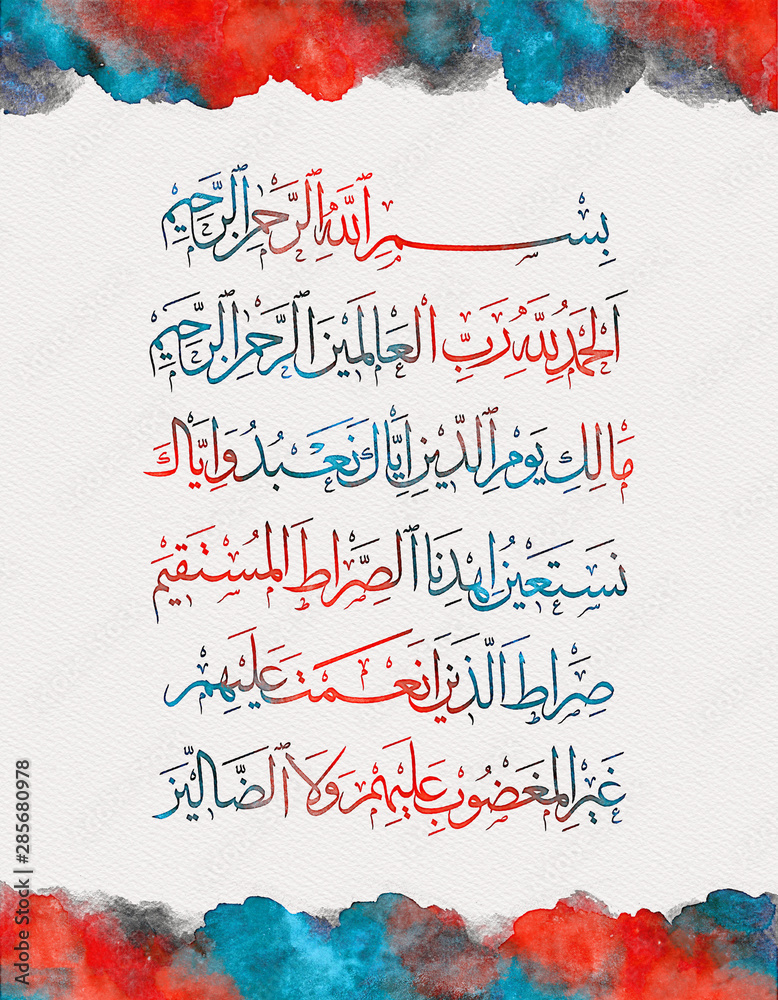 بِسْمِ اللَّهِ الرَّحْمٰنِ الرَّحِيمِ
اَلْحَمْدُ لِلَّهِ رَبِّ الْعَالَمِينَ الرَّحْمٰنِ الرَّحِيمِ
مَالِكِ يَوْمِ الدِّينِ اِيَّاكَ نَعْبُدُ وَاِيَّاكَ
نَسْتَعِينُ اِهْدِنَا الصِّرَاطَ الْمُسْتَقِيمَ
صِرَاطَ الَّذِينَ اَنْعَمْتَ عَلَيْهِمْ
غَيْرِ الْمَغْضُوبِ عَلَيْهِمْ وَلَا الضَّالِّينَ
Adobe Stock | #285680978